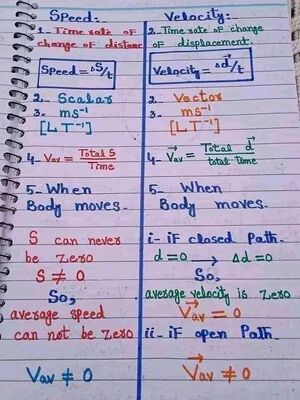 Speed:-
1- Time rate of
change of distance
Speed = ΔS/t
2- Scalar
3- ms⁻¹
[LT⁻¹]
4- Vav = Total S / Time
5- When
Body moves-
S can never
be Zero
S ≠ 0
So,
average speed
can not be Zero
Vav ≠ 0
Velocity:-
2. Time rate of change
of displacement.
Velocity = Δd⃗/t
2- Vector
3- ms⁻¹
[LT⁻¹]
4- V⃗av = Total d⃗ / total time
5- When
Body moves-
i- if closed Path-
d=0 → Δd=0
So,
average velocity is Zero
V⃗av = 0
ii- if open Path-
V⃗av ≠ 0